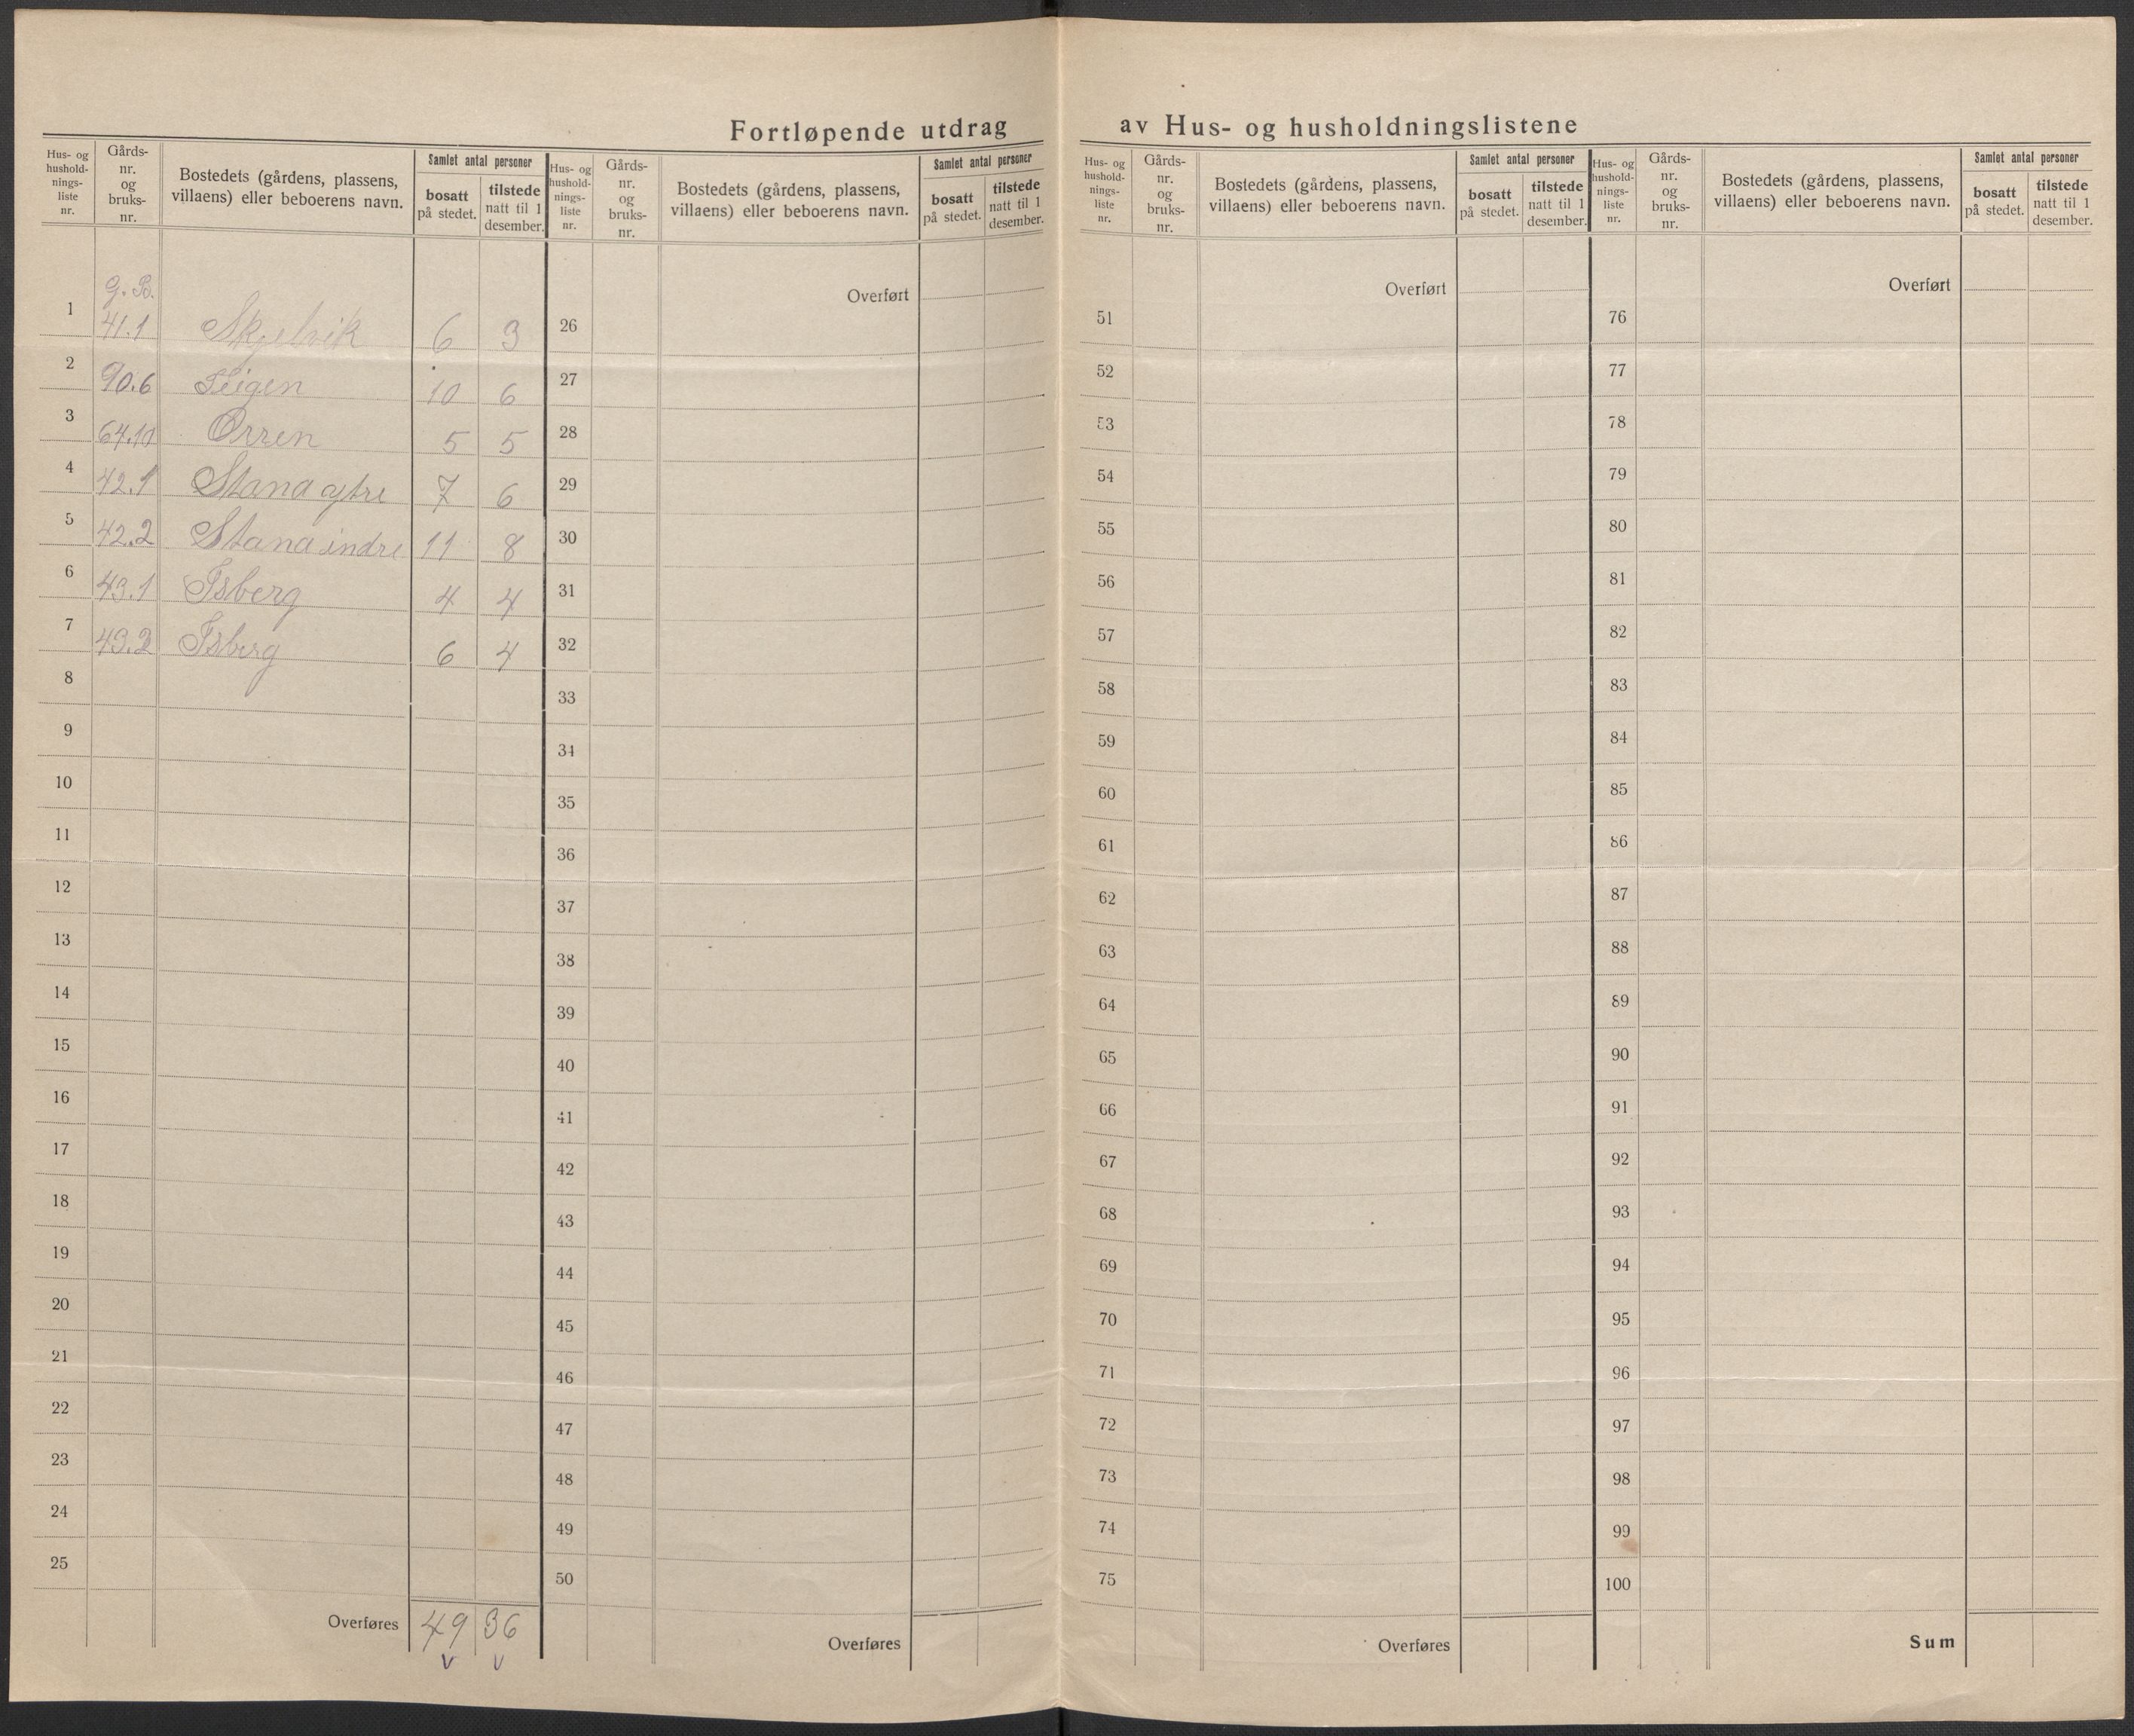 Fortløpende utdrag av Hus- og husholdningslistene
Hus- og hushold-nings-liste nr. Gårds-nr. og bruks-nr. Bostedets (gårdens, plassens, villaens) eller beboerens navn. Samlet antal personer bosatt på stedet. tilstede natt til 1 desember.
G. B.
1 41.1 Skjelvik 6 3
2 90.6 Teigen 10 6
3 64.10 Orren 5 5
4 42.1 Stana ytre 7 6
5 42.2 Stana indre 11 8
6 43.1 Isberg 4 4
7 43.2 Isberg 6 4
8
9
10
11
12
13
14
15
16
17
18
19
20
21
22
23
24
25
Overføres 49 36
v v
Hus- og hushold-nings-liste nr. Gårds-nr. og bruks-nr. Bostedets (gårdens, plassens, villaens) eller beboerens navn. Samlet antal personer bosatt på stedet. tilstede natt til 1 desember.
Overført
26
27
28
29
30
31
32
33
34
35
36
37
38
39
40
41
42
43
44
45
46
47
48
49
50
Overføres
Hus- og hushold-nings-liste nr. Gårds-nr. og bruks-nr. Bostedets (gårdens, plassens, villaens) eller beboerens navn. Samlet antal personer bosatt på stedet. tilstede natt til 1 desember.
Overført
51
52
53
54
55
56
57
58
59
60
61
62
63
64
65
66
67
68
69
70
71
72
73
74
75
Overføres
Hus- og hushold-nings-liste nr. Gårds-nr. og bruks-nr. Bostedets (gårdens, plassens, villaens) eller beboerens navn. Samlet antal personer bosatt på stedet. tilstede natt til 1 desember.
Overført
76
77
78
79
80
81
82
83
84
85
86
87
88
89
90
91
92
93
94
95
96
97
98
99
100
Sum